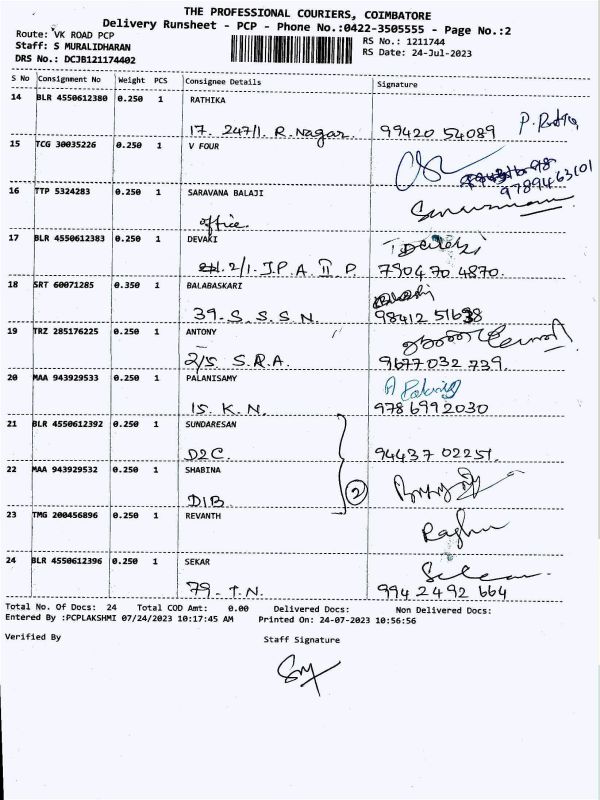 THE PROFESSIONAL COURIERS, COIMBATORE
Delivery Runsheet - PCP - Phone No.:0422-3505555 - Page No.:2
Route: VK ROAD PCP
Staff: S MURALIDHARAN
DRS No.: DCJB121174402
RS No.: 1211744
RS Date: 24-Jul-2023
S No Consignment No Weight PCS Consignee Details Signature
14 BLR 4550612380 0.250 1 RATHIKA
17. 247/1. R.Nagar. 99420 54089
15 TCG 30035226 0.250 1 V FOUR
9789463101
16 TTP 5324283 0.250 1 SARAVANA BALAJI
office.
17 BLR 4550612383 0.250 1 DEVAKI
2/1. J.P.A II P. 7904 70 4870.
18 SRT 60071285 0.350 1 BALABASKARI
39. S.S.S N. 98412 51638
19 TRZ 285176225 0.250 1 ANTONY
2/5 S.R.A. 9677 032 739.
20 MAA 943929533 0.250 1 PALANISAMY
15. K.N. 978 6992030
21 BLR 4550612392 0.250 1 SUNDARESAN
D2C. 94437 02251.
22 MAA 943929532 0.250 1 SHABINA
D1B. 2
23 TMG 200456896 0.250 1 REVANTH
Raghu
24 BLR 4550612396 0.250 1 SEKAR
79. T.N. 994 2492 664
Total No. Of Docs: 24 Total COD Amt: 0.00 Delivered Docs: Non Delivered Docs:
Entered By :PCPLAKSHMI 07/24/2023 10:17:45 AM Printed On: 24-07-2023 10:56:56
Verified By Staff Signature